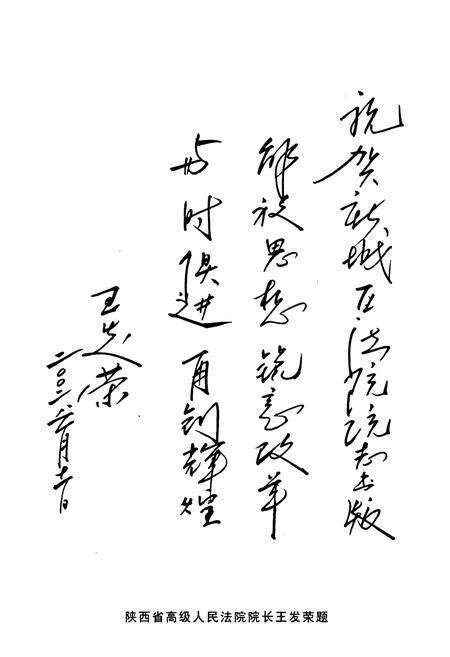 祝贺新城区法院院志出版
解放思想 锐意改革
与时俱进 再创辉煌
王发荣
二〇〇二.六月十一日
陕西省高级人民法院院长王发荣题